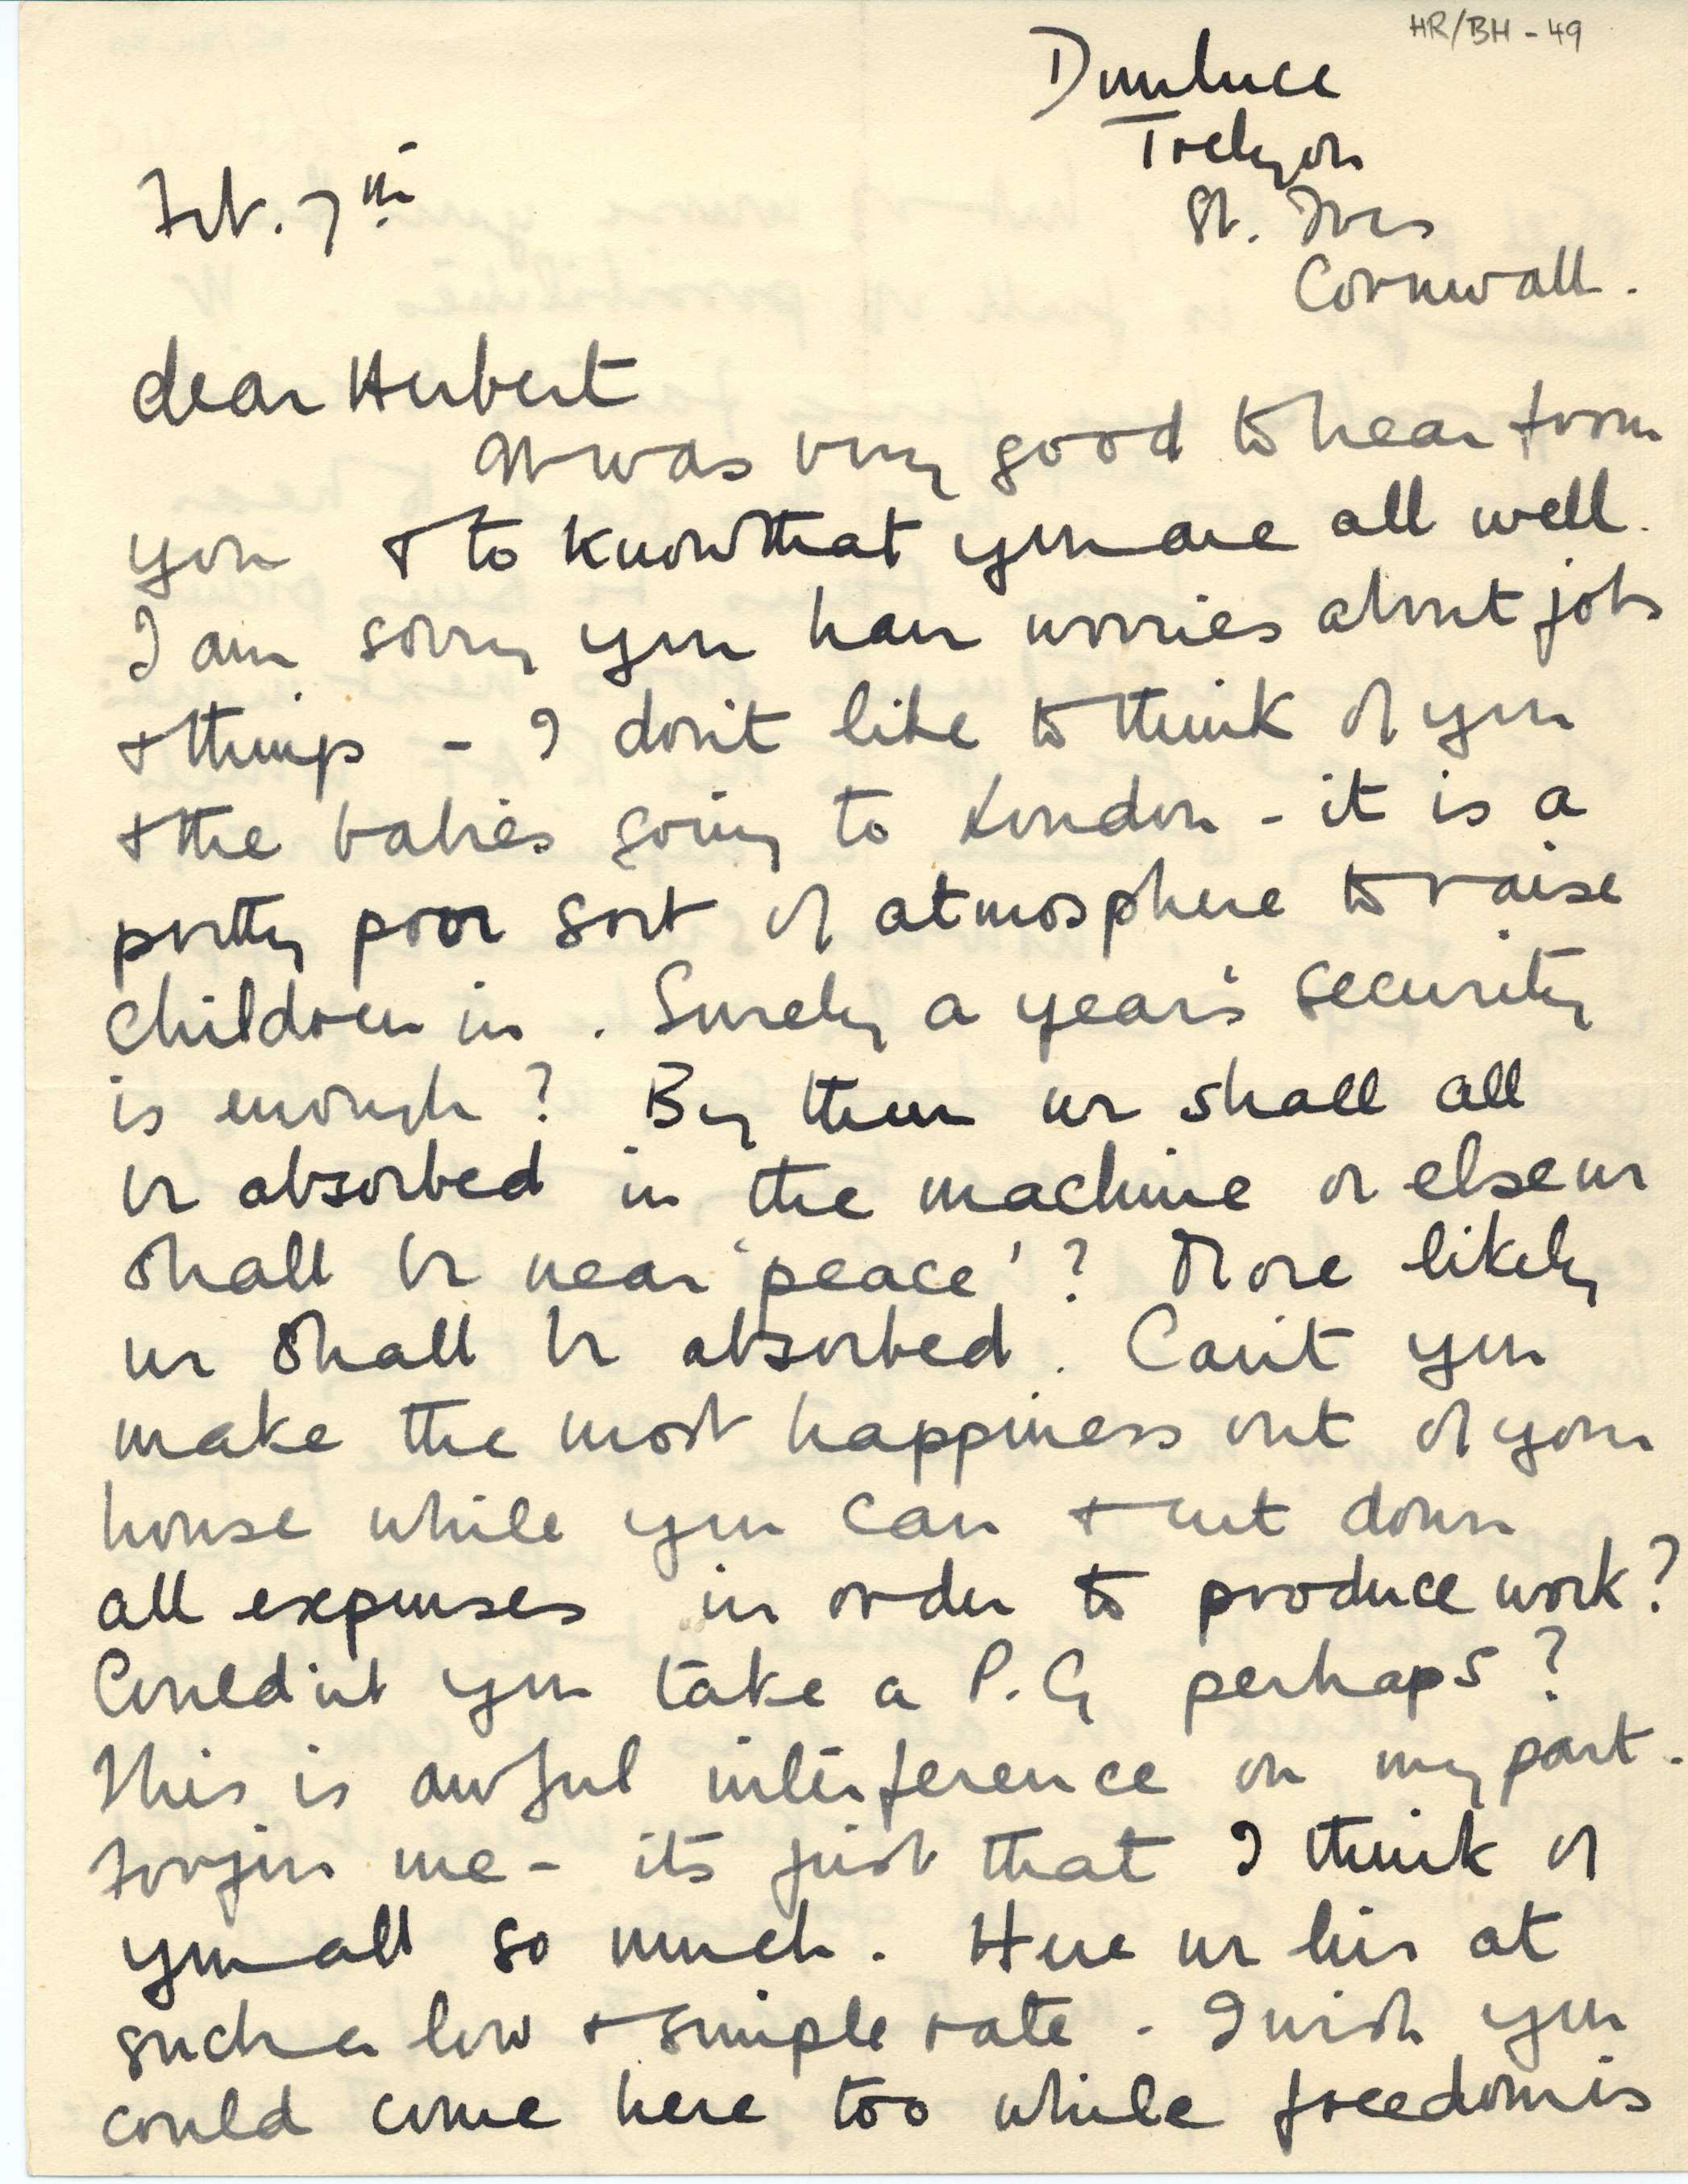 HR/BH - 49
Dunluce
Trelyon
St. Ives
Cornwall.
Feb. 7th
dear Herbert
It was very good to hear from
you + to know that you are all well.
I am sorry you have worries about jobs
+ things - I don't like to think of you
+ the babies going to London - it is a
pretty poor sort of atmosphere to raise
children in. Surely a year's security
is enough? By then we shall all
be absorbed in the machine or else we
shall be near 'peace'? More likely
we shall be absorbed. Can't you
make the most happiness out of your
house while you can + cut down
all expenses in order to produce work?
Couldn't you take a P.G perhaps?
This is awful interference on my part.
forgive me - its just that I think of
you all so much. Here we live at
such a low + simple rate. I wish you
could come here too while freedom is